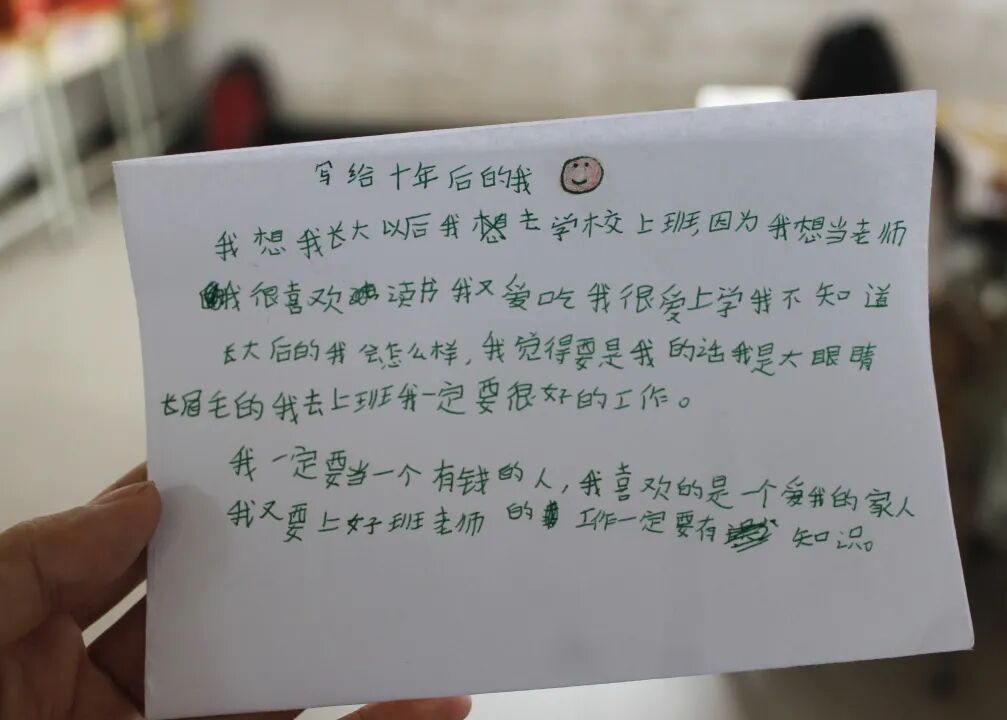 写给十年后的我
我想我长大以后我想去学校上班,因为我想当老师
我很喜欢读书我又爱吃我很爱上学我不知道
长大后的我会怎么样,我觉得要是我的话我是大眼睛
长眉毛的我去上班我一定要很好的工作。
我一定要当一个有钱的人,我喜欢的是一个爱我的家人
我又要上好班老师的工作一定要有知识。